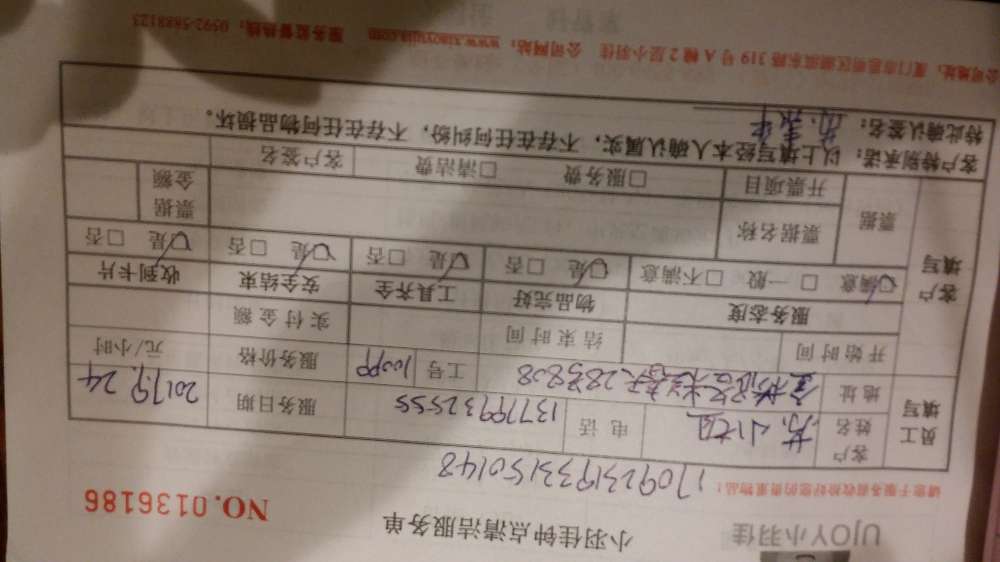 UJOY小羽佳
小羽佳钟点清洁服务单
NO.0136186
请您于服务前收捡好您的贵重物品！
1709231933150148
员工填写
客户姓名
电话 13779932555
服务日期 2017.9.24
地址
28号808
工号
服务价格 元/小时
开始时间 结束时间 实付金额
客户填写
服务态度 物品完好 工具齐全 安全结束 收到卡片
☑满意 □一般 □不满意 ☑是 □否 ☑是 □否 ☑是 □否 ☑是 □否
票据 票据名称 票据金额
开票项目 □服务费 □清洁费 客户签名
客户特别承诺：以上填写经本人确认属实，不存在任何纠纷，不存在任何物品损坏。
特此确认签名：
公司地址：厦门市思明区湖滨东路319号A幢2层小羽佳 公司网站：www.xiaoyujia.com 服务监督热线：0592-5888123